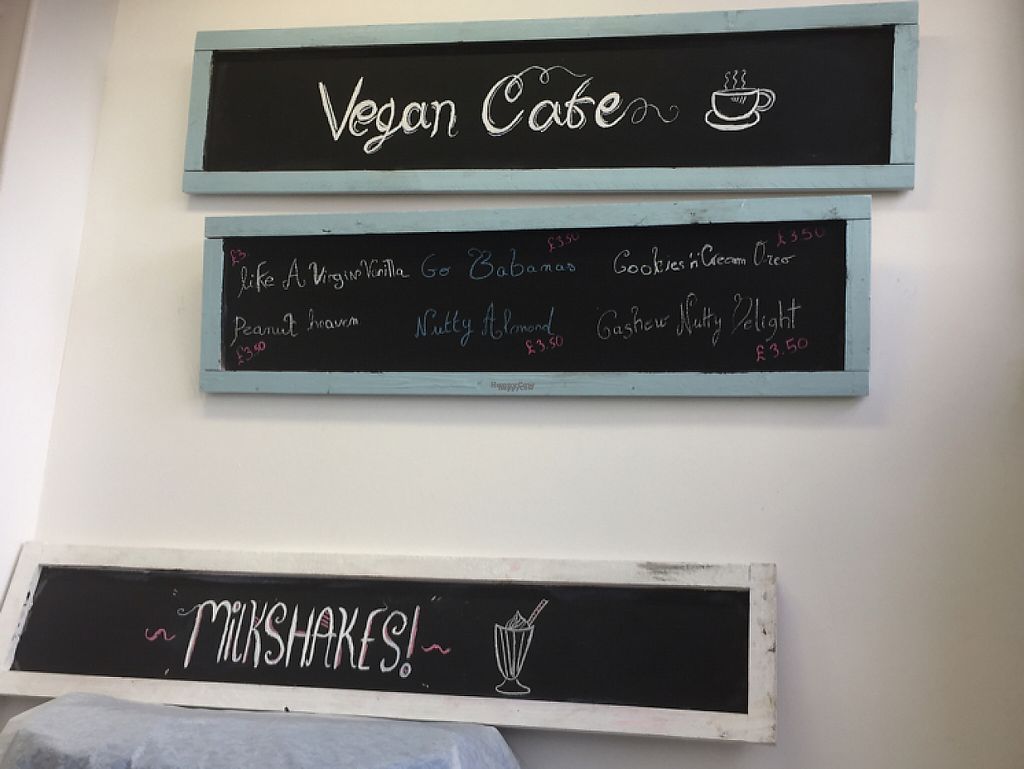 Vegan Cafe
£3.
like A Virgin Vanilla
£3.50
Go Babanas
£3.50
Cookies 'n' Cream Oreo
Peanut heaven
£3.50
Nutty Almond
£3.50
Cashew Nutty Delight
£3.50
HappyCow
~ MILKSHAKES! ~